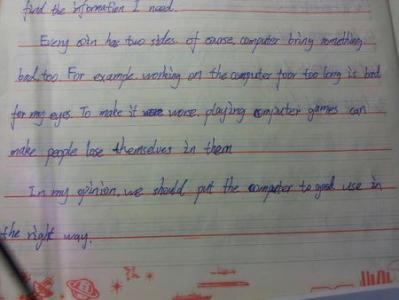 find the information I need.
Every coin has two sides. of course, computer bring something
bad, too. For example. working on the computer foor too long is bad
for my eyes. To make it worse. playing computer games can
make people lose themselves in them
In my opinion. we should put the computer to good use in
the right way.